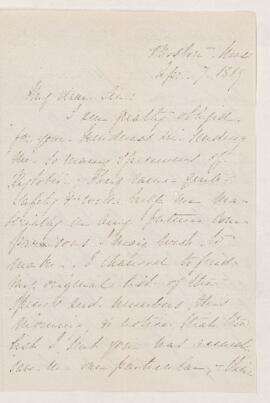 Boston Mass
Apr. 7. 1869
My dear Sir:
I am greatly obliged
for your kindness in sending
me so many specimens of
They came quite
safely & will help me ma-
terially in any future com-
parisons I may wish to
make. I chanced to find
my original list of the
species and numbers this
morning, & notice that the
list I sent you was
in one particular,